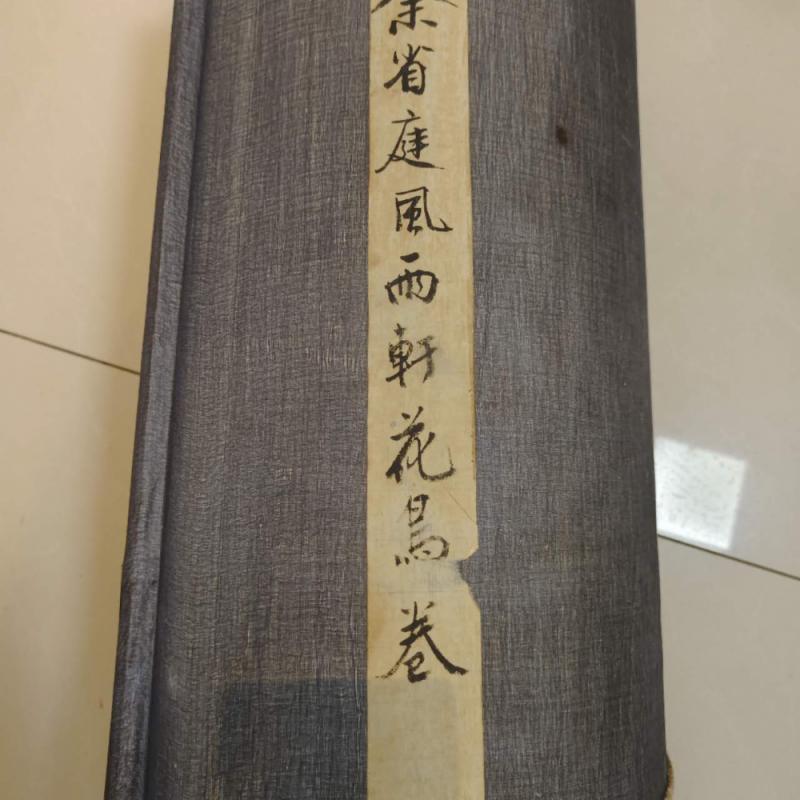 余省庭風雨軒花鳥卷